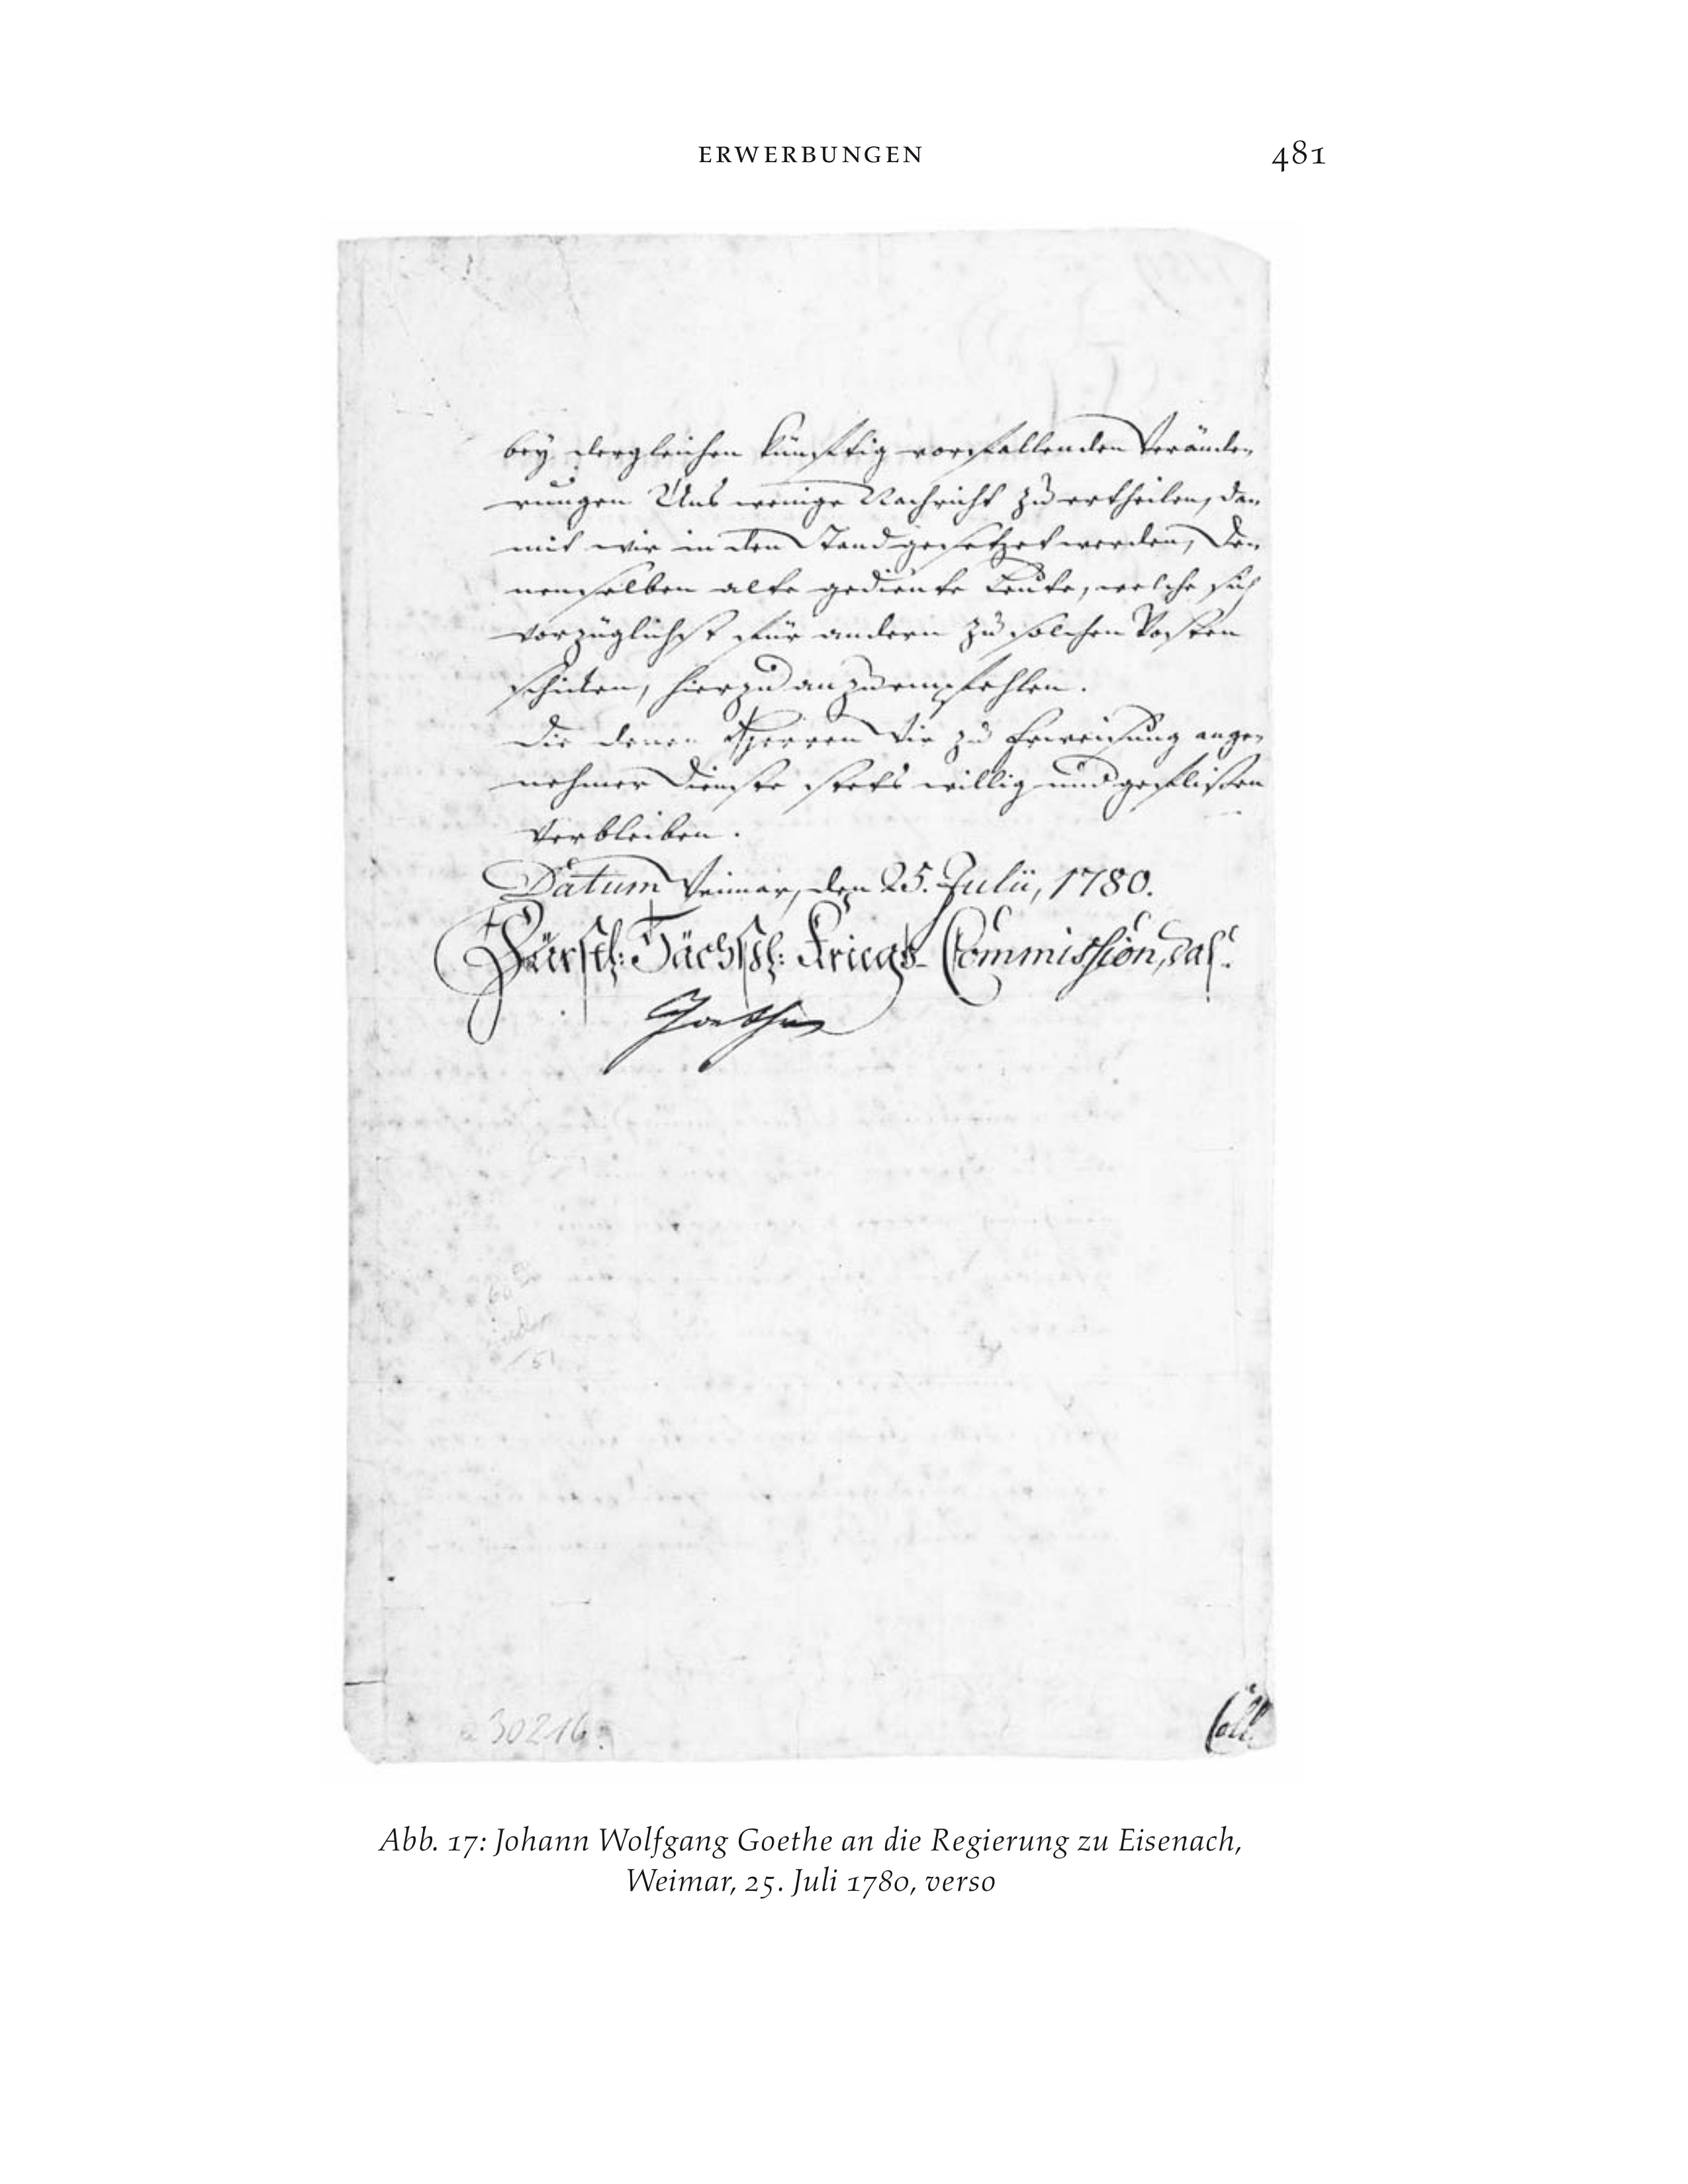 ERWERBUNGEN 481
bey dergleichen künftig vorfallenden Verände-
rungen Uns wenige Nachricht zu ertheilen, da-
mit wir in den Stand gesetzet werden, De-
nenselben alte gediente Leute, welche sich
vorzüglichst für andern zu solchen Posten
schicken, hierzu anzuempfehlen.
Die denen Herren Wir zu Erweisung ange-
nehmer Dienste stets willig und geflißen
verbleiben.
Datum Weimar, den 25. Julii, 1780.
Fürstl: Sächsßl: Kriegs-Commission, das.
Goethe
30216.
Abb. 17: Johann Wolfgang Goethe an die Regierung zu Eisenach,
Weimar, 25. Juli 1780, verso